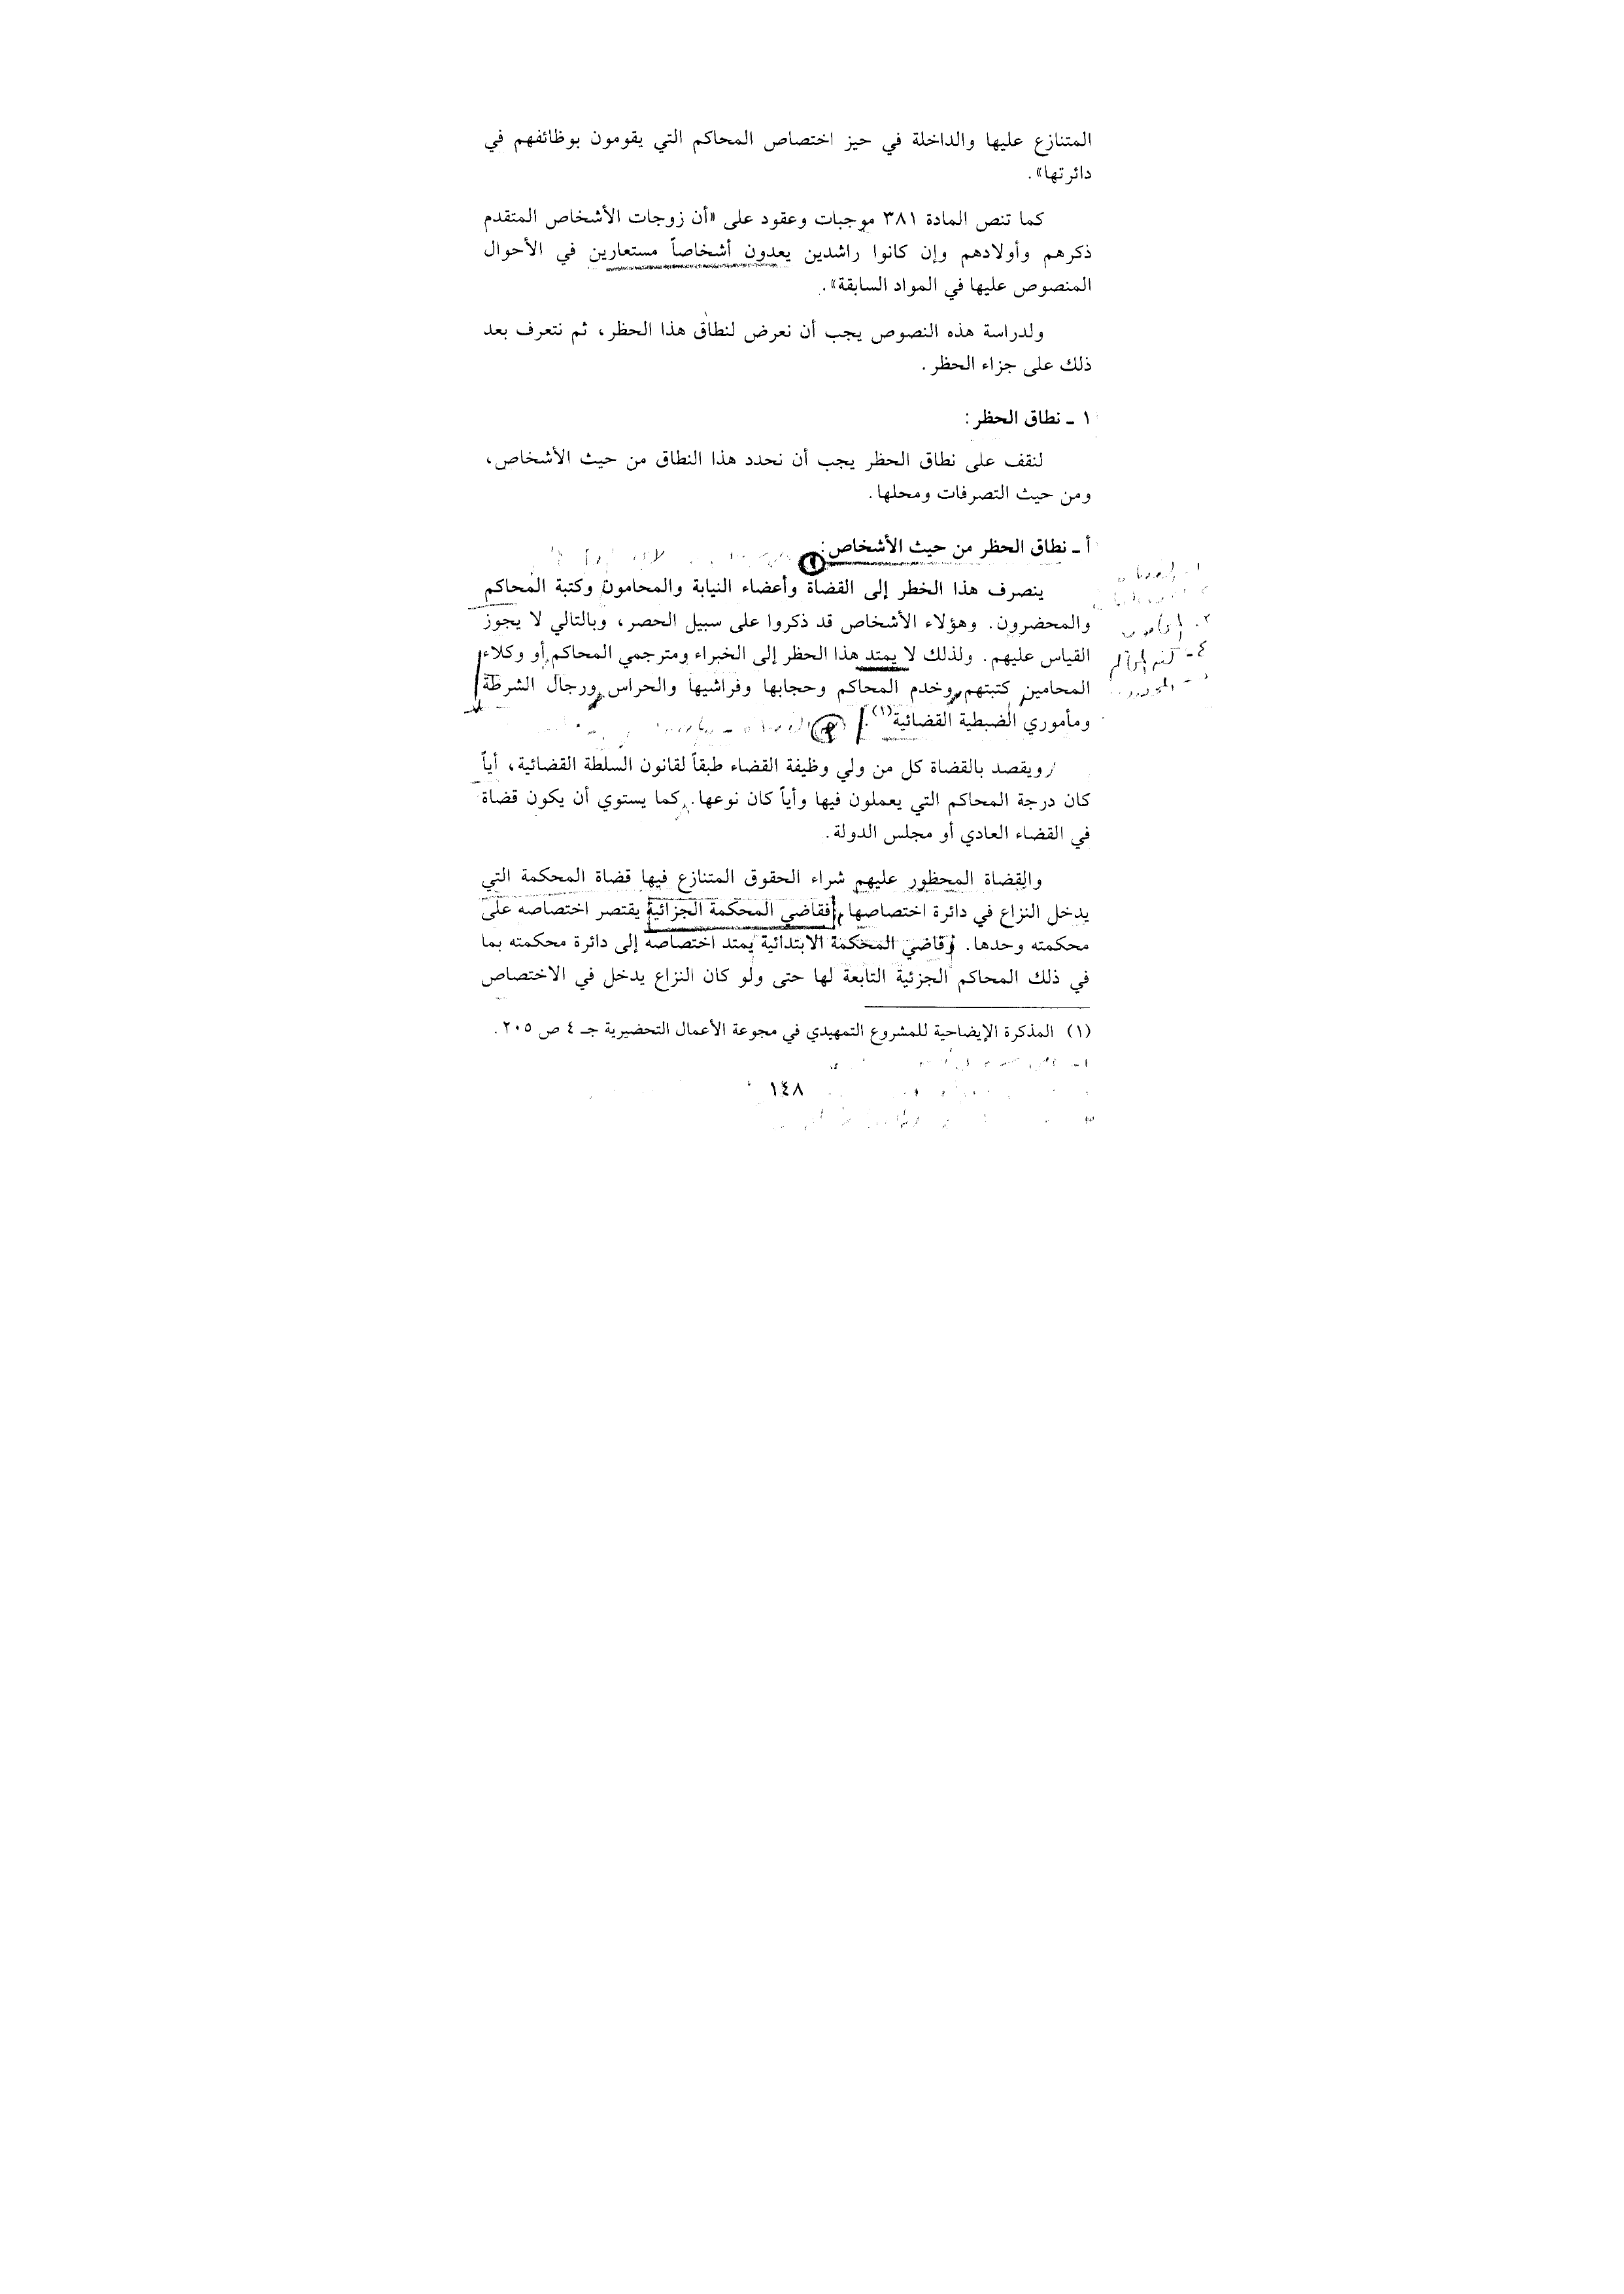 المتنازع عليها والداخلة في حيز اختصاص المحاكم التي يقومون بوظائفهم في
دائرتها».
كما تنص المادة ٣٨١ موجبات وعقود على «أن زوجات الأشخاص المتقدم
ذكرهم وأولادهم وإن كانوا راشدين يعدون أشخاصاً مستعارين في الأحوال
المنصوص عليها في المواد السابقة».
ولدراسة هذه النصوص يجب أن نعرض لنطاق هذا الحظر، ثم نتعرف بعد
ذلك على جزاء الحظر.
١ ـ نطاق الحظر:
لنقف على نطاق الحظر يجب أن نحدد هذا النطاق من حيث الأشخاص،
ومن حيث التصرفات ومحلها.
أ ـ نطاق الحظر من حيث الأشخاص:
ينصرف هذا الخطر إلى القضاة وأعضاء النيابة والمحامون وكتبة المحاكم
والمحضرون. وهؤلاء الأشخاص قد ذكروا على سبيل الحصر، وبالتالي لا يجوز
القياس عليهم. ولذلك لا يمتد هذا الحظر إلى الخبراء ومترجمي المحاكم أو وكلاء
المحامين كتبتهم وخدم المحاكم وحجابها وفراشيها والحراس ورجال الشرطة
ومأموري الضبطية القضائية(١).
ويقصد بالقضاة كل من ولي وظيفة القضاء طبقاً لقانون السلطة القضائية، أياً
كان درجة المحاكم التي يعملون فيها وأياً كان نوعها. كما يستوي أن يكون قضاة
في القضاء العادي أو مجلس الدولة.
والقضاة المحظور عليهم شراء الحقوق المتنازع فيها قضاة المحكمة التي
يدخل النزاع في دائرة اختصاصها، فقاضي المحكمة الجزائية يقتصر اختصاصه على
محكمته وحدها. وقاضي المحكمة الابتدائية يمتد اختصاصه إلى دائرة محكمته بما
في ذلك المحاكم الجزئية التابعة لها حتى ولو كان النزاع يدخل في الاختصاص
(١) المذكرة الإيضاحية للمشروع التمهيدي في مجوعة الأعمال التحضيرية جـ ٤ ص ٢٠٥.
١٤٨